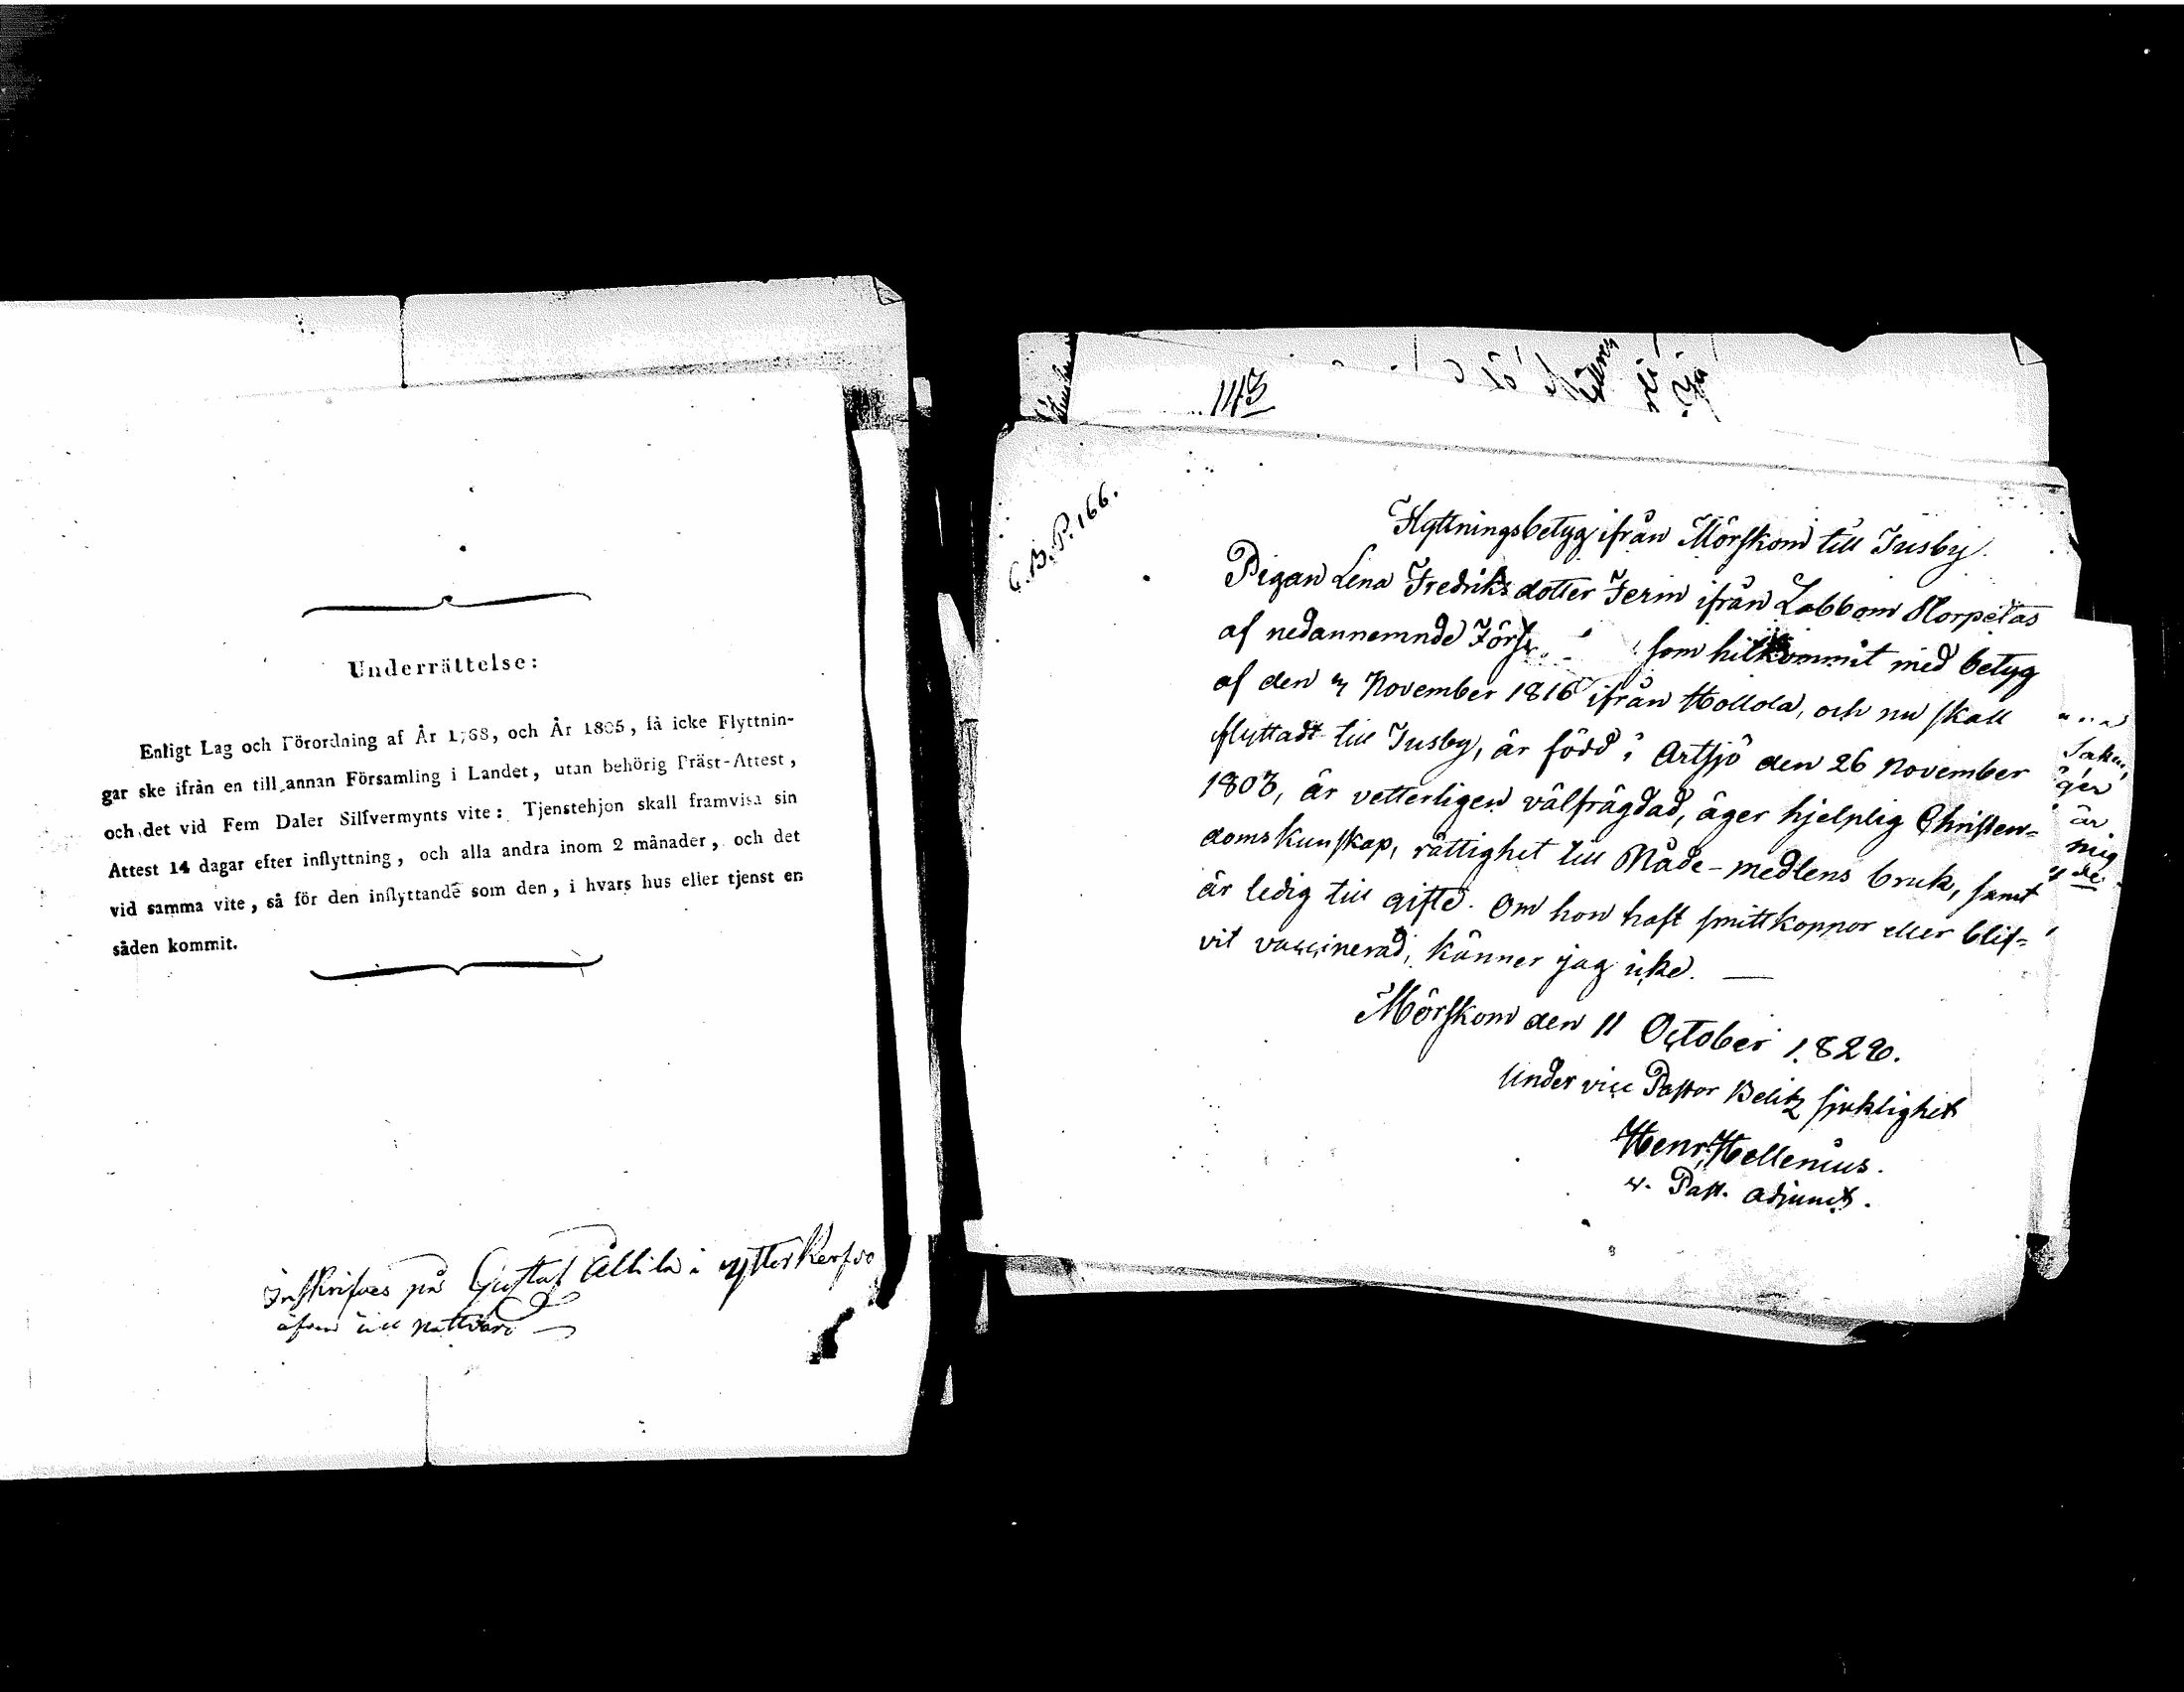 Underrättelse:
Enligt Lag och Förordning af År 1768, och År 1805, få icke Flyttnin-
gar ske ifrån en till annan Församling i Landet, utan behörig Präst-Attest,
och det vid Fem Daler Silfvermynts vite: Tjenstehjon skall framvisa sin
Attest 14 dagar efter inflyttning, och alla andra inom 2 månader, och det
vid samma vite, så för den inflyttande som den, i hvars hus eller tjenst en
såden kommit.
Inskrifves på Gustaf Alkila i ytterkerfvo
äfven till nattvard
143
C.B.P. 166.
Flyttningsbetyg ifrån Mörskom till Tusby.
Pigan Lena Fredriksdotter Ferm ifrån Labbom Norpetas
af nedannemnde Förs som hitkommit med betyg
af den 7 November 1816 ifrån Hollola, och nu skall
flyttadt till Tusby, är född i Artsjö den 26 November
1803, är vetterligen välfrägdad, äger hjelplig Christen-
domskunskap, rättighet till Nåde-medlens bruk, samt
är ledig till gifte. Om hon haft smittkoppor eller blif-
vit vaccinerad, känner jag icke. —
Mörskom den 11 October 1820.
Under vice Pastor Belitz sjuklighet
Henr. Hellenius.
v. Past. adjunct.
är
mig
de